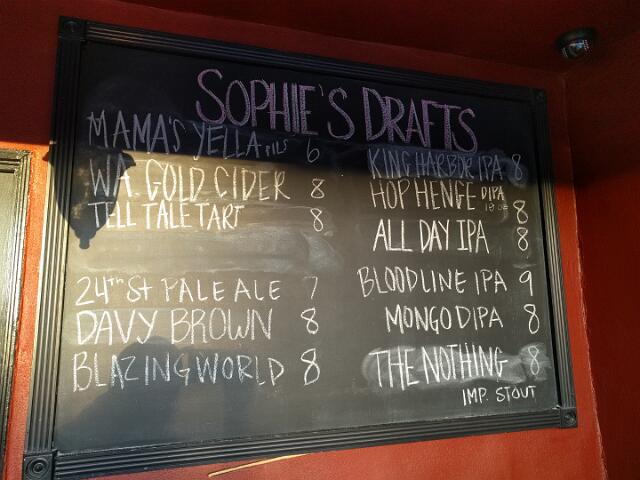 SOPHIE'S DRAFTS
MAMA'S YELLA PILS 6
WA. GOLD CIDER 8
TELL TALE TART 8
24th St PALE ALE 7
DAVY BROWN 8
BLAZING WORLD 8
KING HARBOR IPA 8
HOP HENGE DIPA 8
ALL DAY IPA 8
BLOODLINE IPA 9
MONGO DIPA 8
THE NOTHING 8
IMP. STOUT